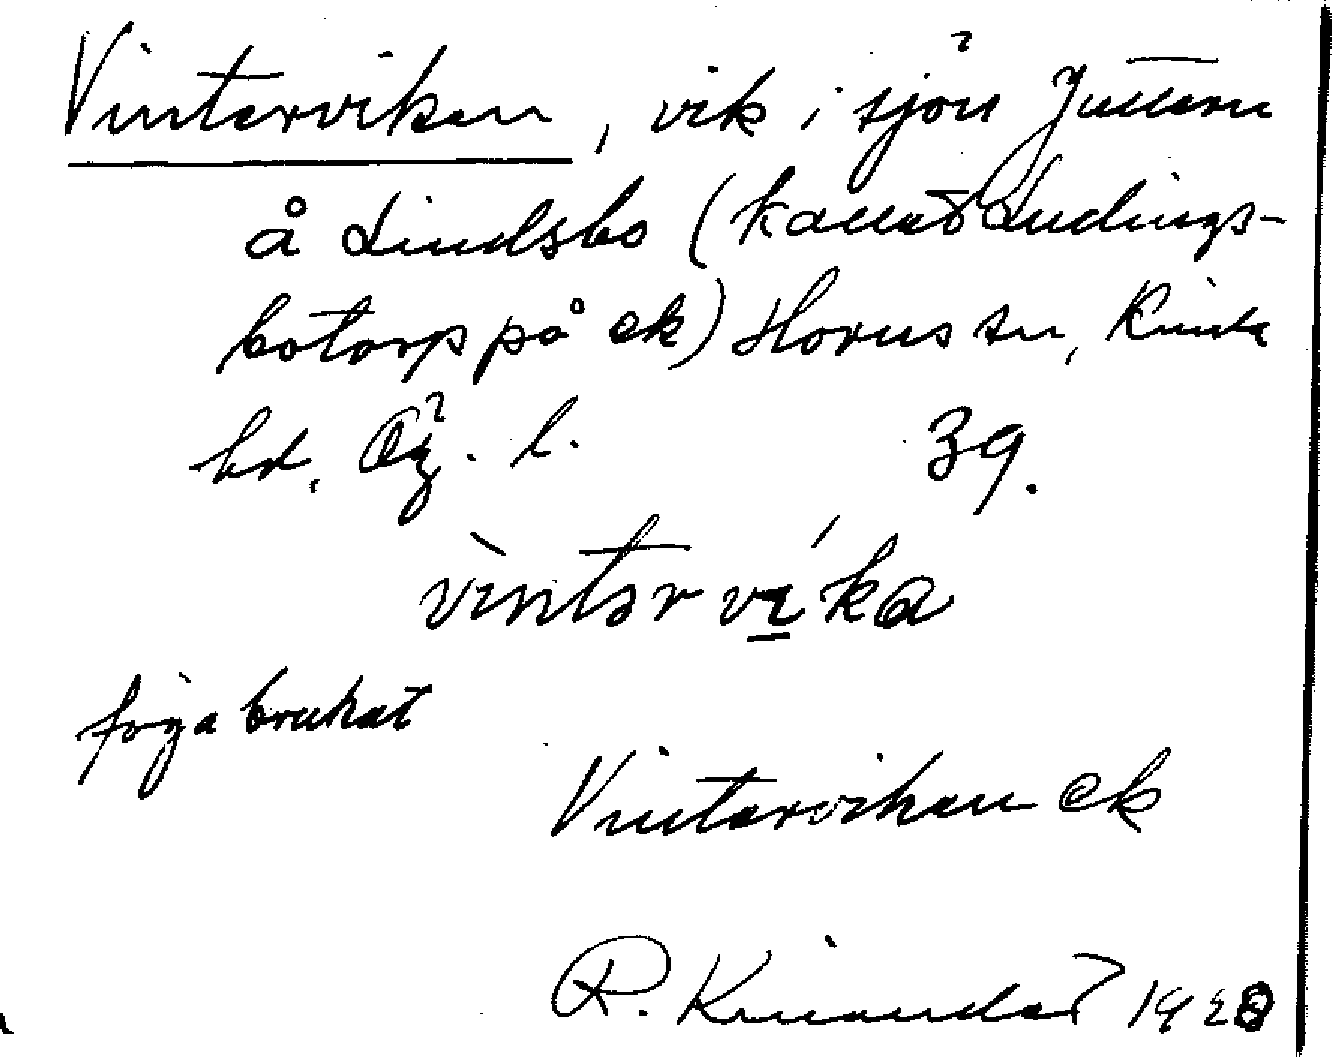 Vinterviken, vik i sjön Juttern
å Lindsbo (kallat Ludings-
botorp på ek) Horns sn, Kinda
hd, Ög. l. 39.
vìntər víka
föga brukat
Vinterviken ek
R. Kinander 1928